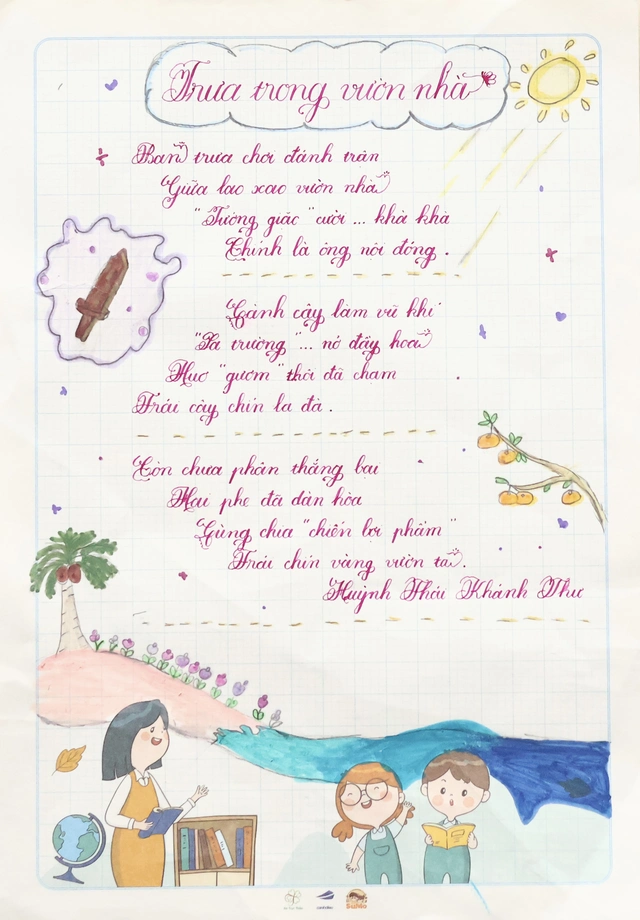 Trưa trong vườn nhà
Ban trưa chơi đánh trận
Giữa lao xao vườn nhà
"Tướng giặc" cười ... khà khà
Chính là ông nội đóng.
Cành cây làm vũ khí
"Sa trường"... nở đầy hoa
Huơ "gươm" thời đã chạm
Trái cây chín la đà.
Còn chưa phân thắng bại
Hai phe đã dàn hòa
Cùng chia "chiến lợi phẩm"
Trái chín vàng vườn ta.
Huỳnh Thái Khánh Thư